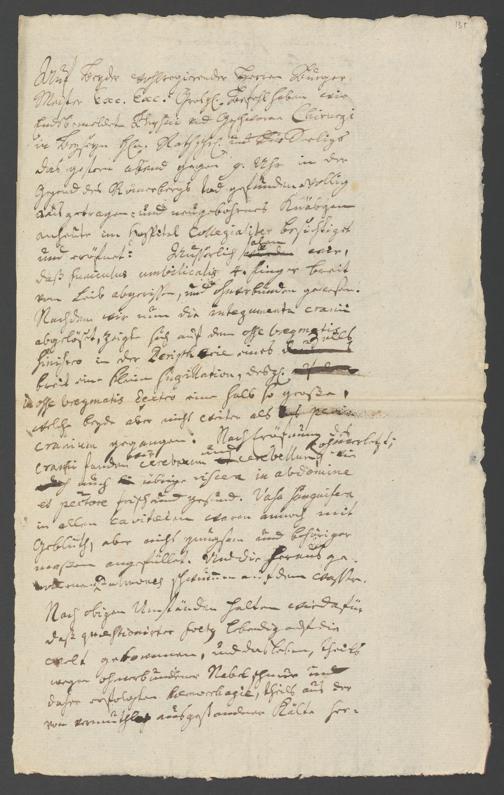 135
Auf Beyder wohlregierender Herren Burger
Meister Exc. Exc. Befehl haben wir
Endsbemeldete Physici und Chirurgi
in Beyseyn Hn.
das gestern abend gegen 9. Uhr in der
Gegend des tod gefundene völlig
ausgetragen- und neugebohrnes Knäbgen
anheute im Hospital Collegialiter besichtiget
und eröfnet: Äusserlich sahen wir,
daß funiculus umbilicalis 4. finger breit
vom Leib abgerissen, und ohnverbunden gewesen.
Nachdem wir nun die integumenta cranii
abgelößt, zeigte sich auf dem osse bregmatis
sinistro in der Peripherie eines
breit eine kleine sugillation, desgl.
osse bregmatis dextro eine halb so große,
welche beyde aber nicht weiter als peri-
cranium gegangen. Nach Eröfnung des
cranii fanden wir cerebrum und cerebellum ohnverletzt;
auch übrige viscera in abdomine
et pectore frisch und gesund. Vasa sanguifera
in allen cavitäten waren annoch mit
Geblüth, aber nicht gnugsam und behöriger
maßen angefüllet. Und die herausge-
nommene pulmones schwummen auf dem wasser.
Nach obigen Umständen halten wir dafür
daß quaestionirter foetus lebendig auf die
welt gekommen, und das Leben, theils
wegen ohnverbundener Nabelschnur und
daher erfolgten Hemorhagie, theils aus der
von vermuthlich ausgestandener Kälte her-